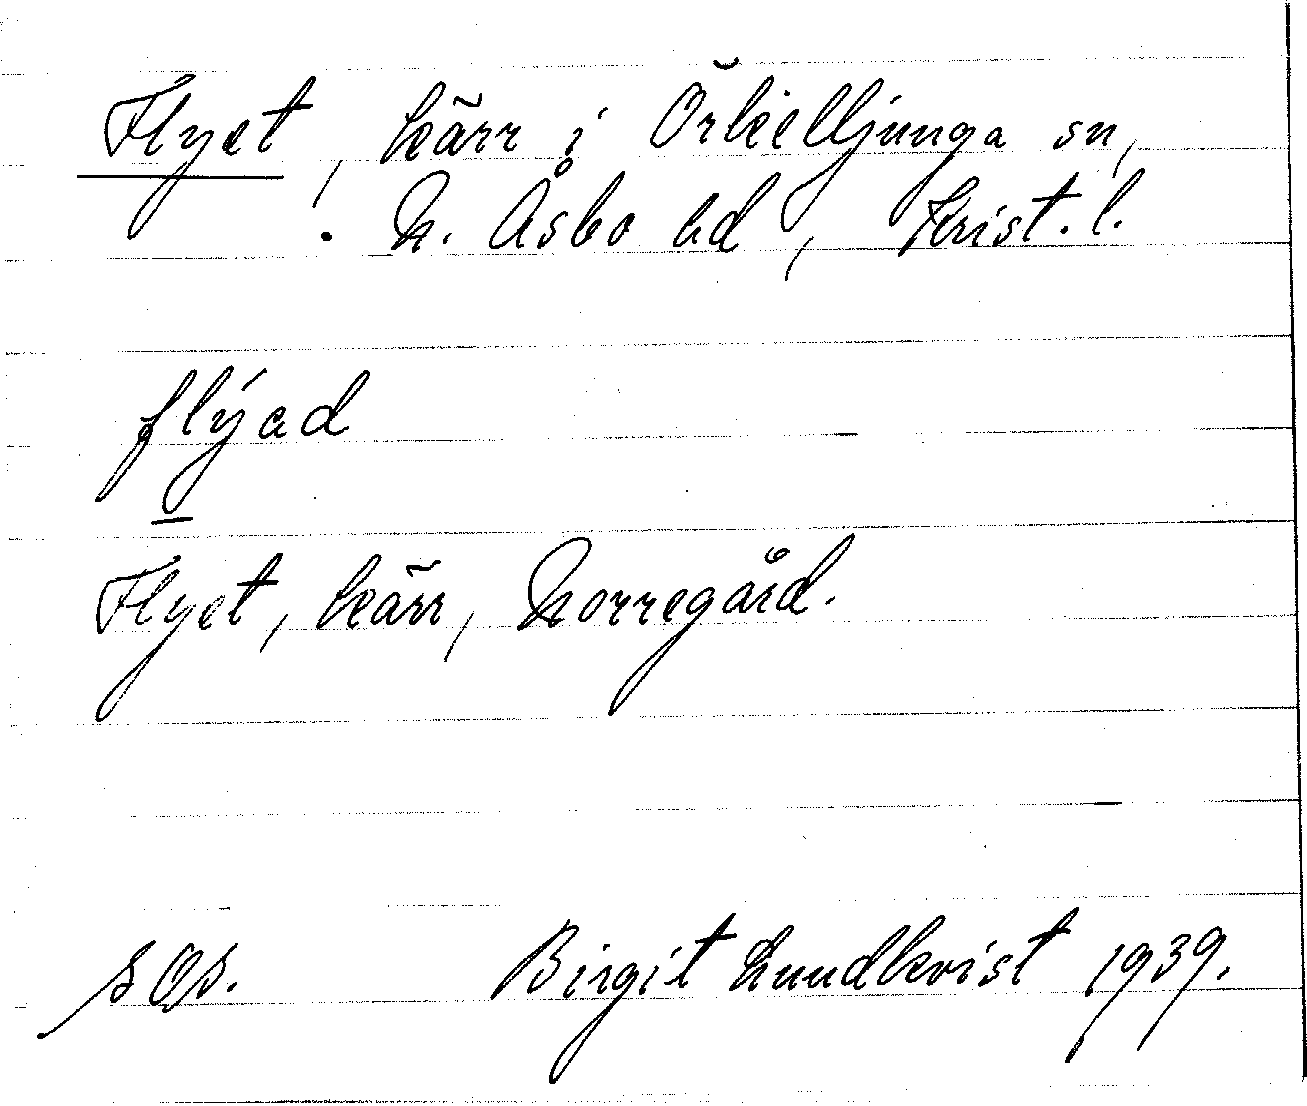 Flyet, kärr i Örkelljunga sn,
N. Åsbo hd, Krist. l.
flýad
Flyet, kärr, Norregård.
Birgit Lundkvist 1939.